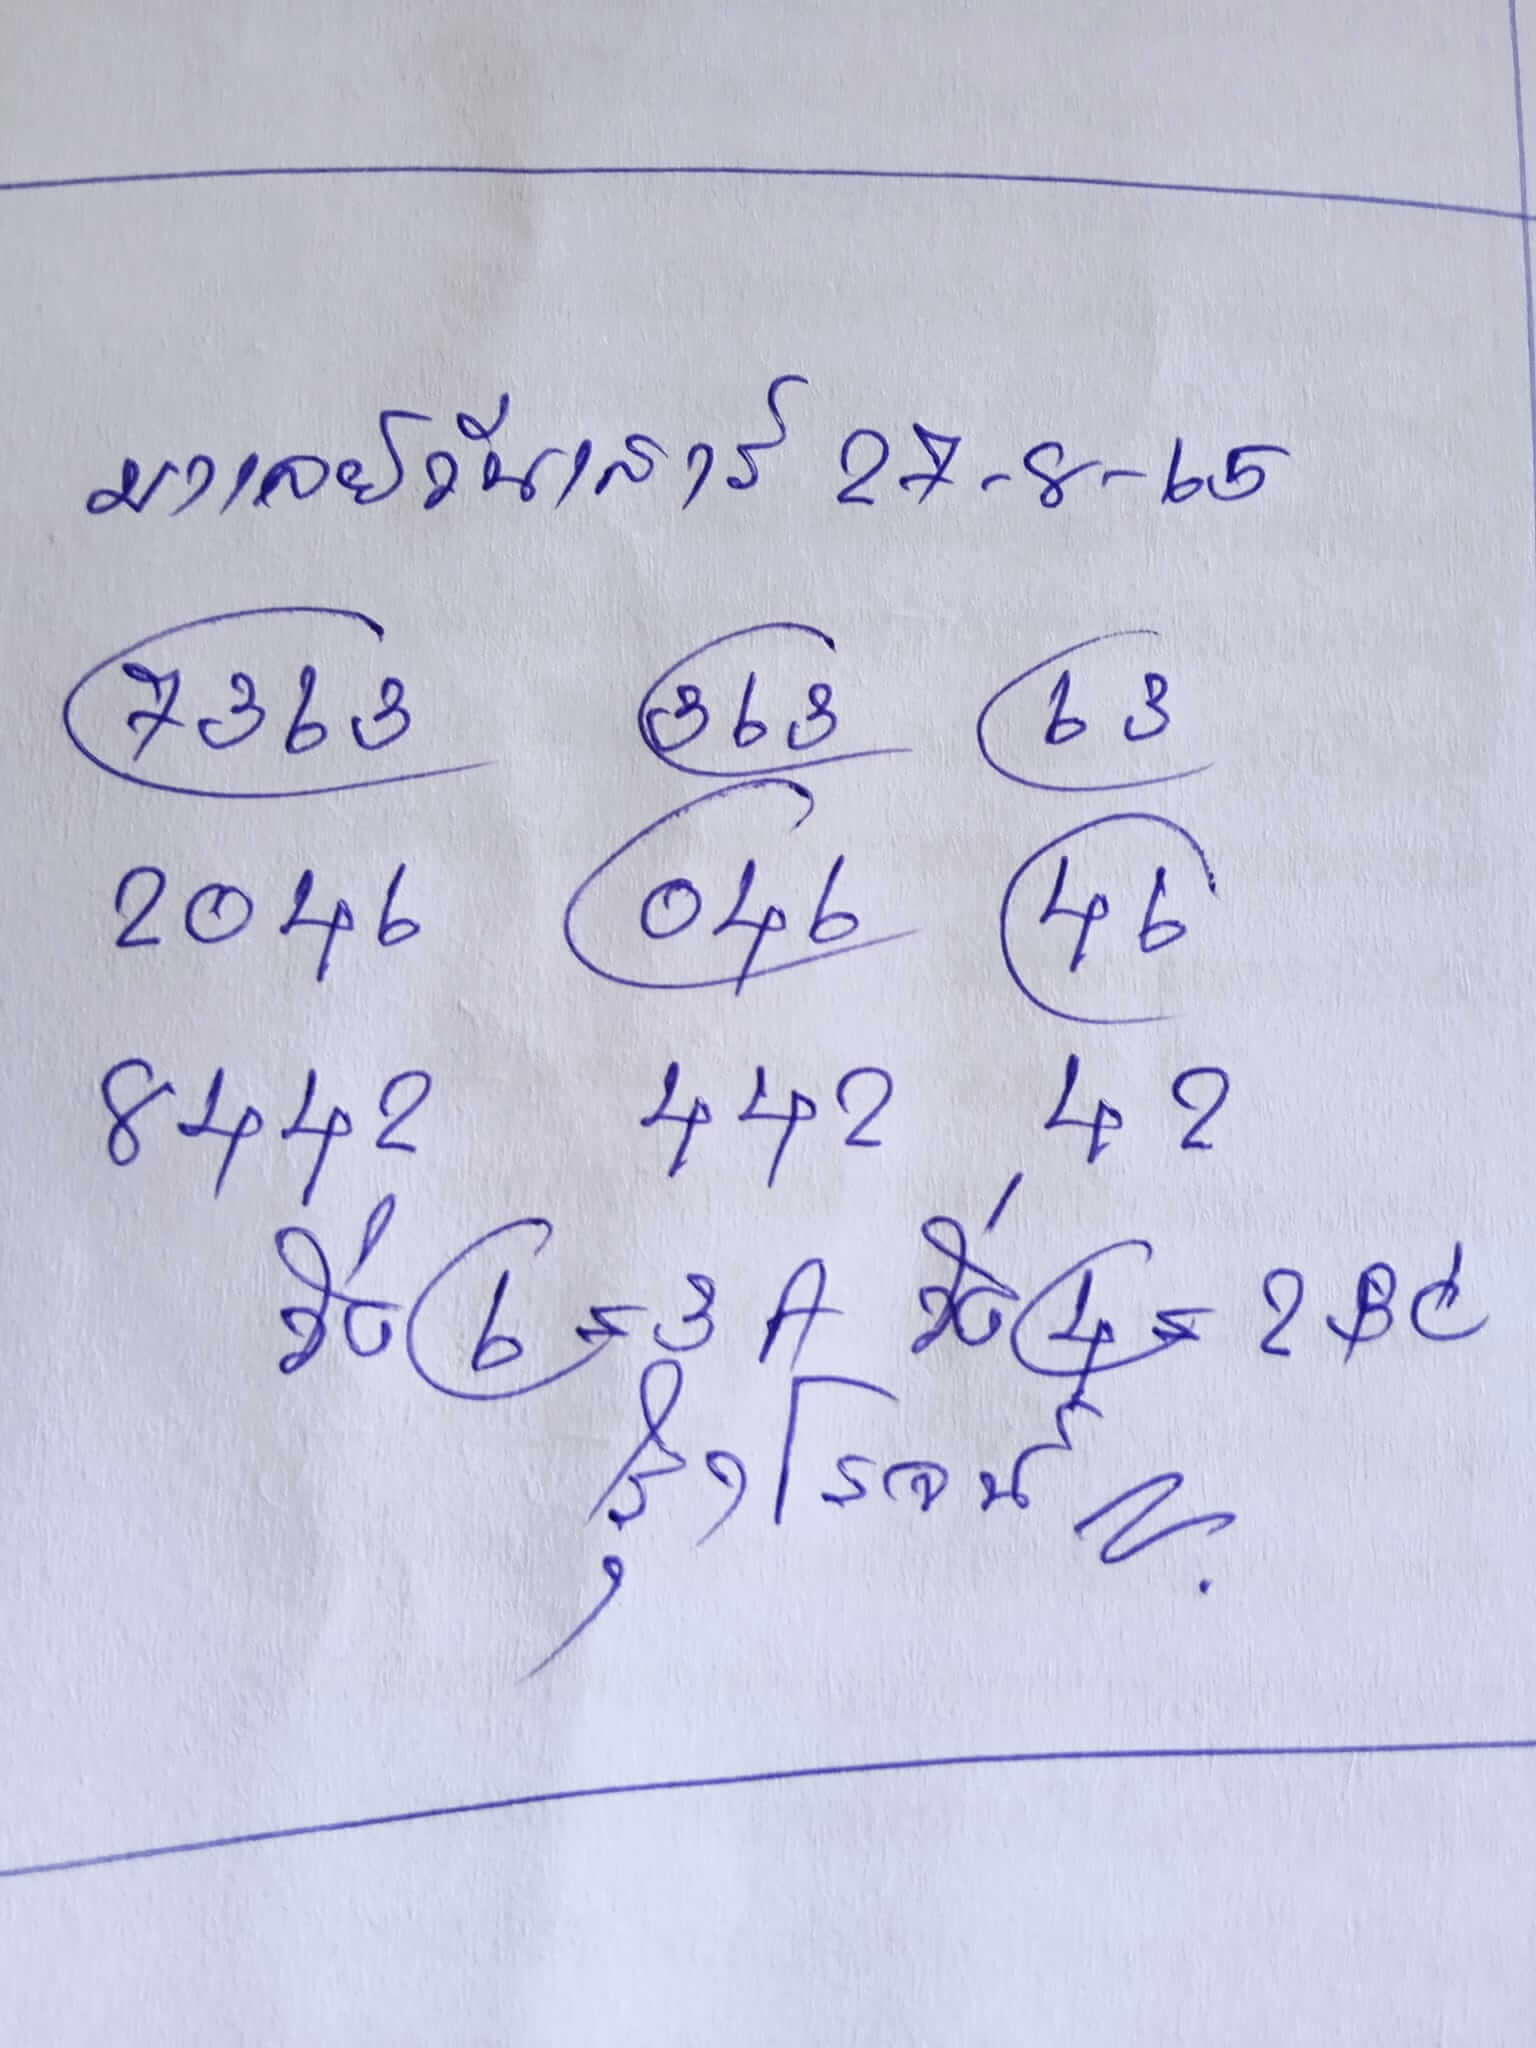 มาเลย์วันเสาร์ 27-8-65
7363 363 63
2046 046 46
8442 442 42
6=3 A 4=2 BC
รุ่งโรจน์